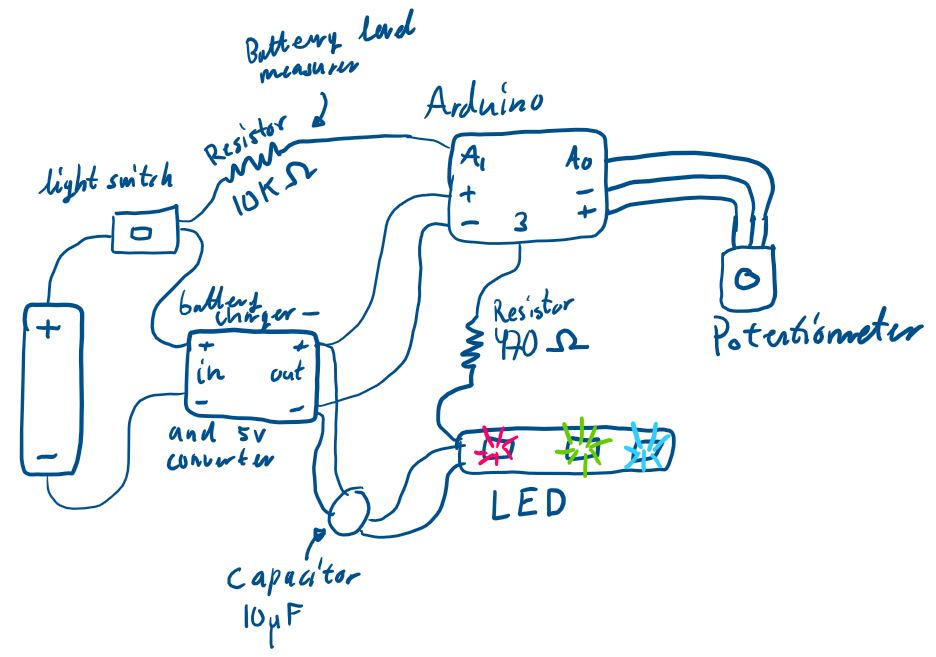 Battery load
measurer
Arduino
Resistor
10K Ω
light switch
A1
A0
+
-
-
+
3
battery
charger -
+
+
in
out
-
-
and 5v
converter
Resistor
470 Ω
Potentiometer
+
-
LED
Capacitor
10µF